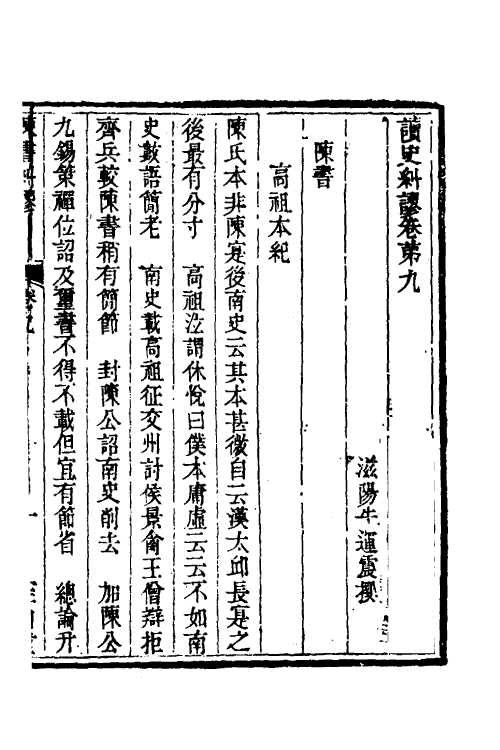 讀史糾謬卷第九
滋陽牛運震撰
陳書
高祖本紀
陳氏本非陳寔後南史云其本甚微自云漢太邱長寔之
後最有分寸　高祖泣謂休悅曰僕本庸虛云云不如南
史數語簡老　南史載高祖征交州討侯景禽王僧辯拒
齊兵較陳書稍有簡節　封陳公詔南史削去　加陳公
九錫策禪位詔及璽書不得不載但宜有節省　總論升
陳書糾謬　卷九　一